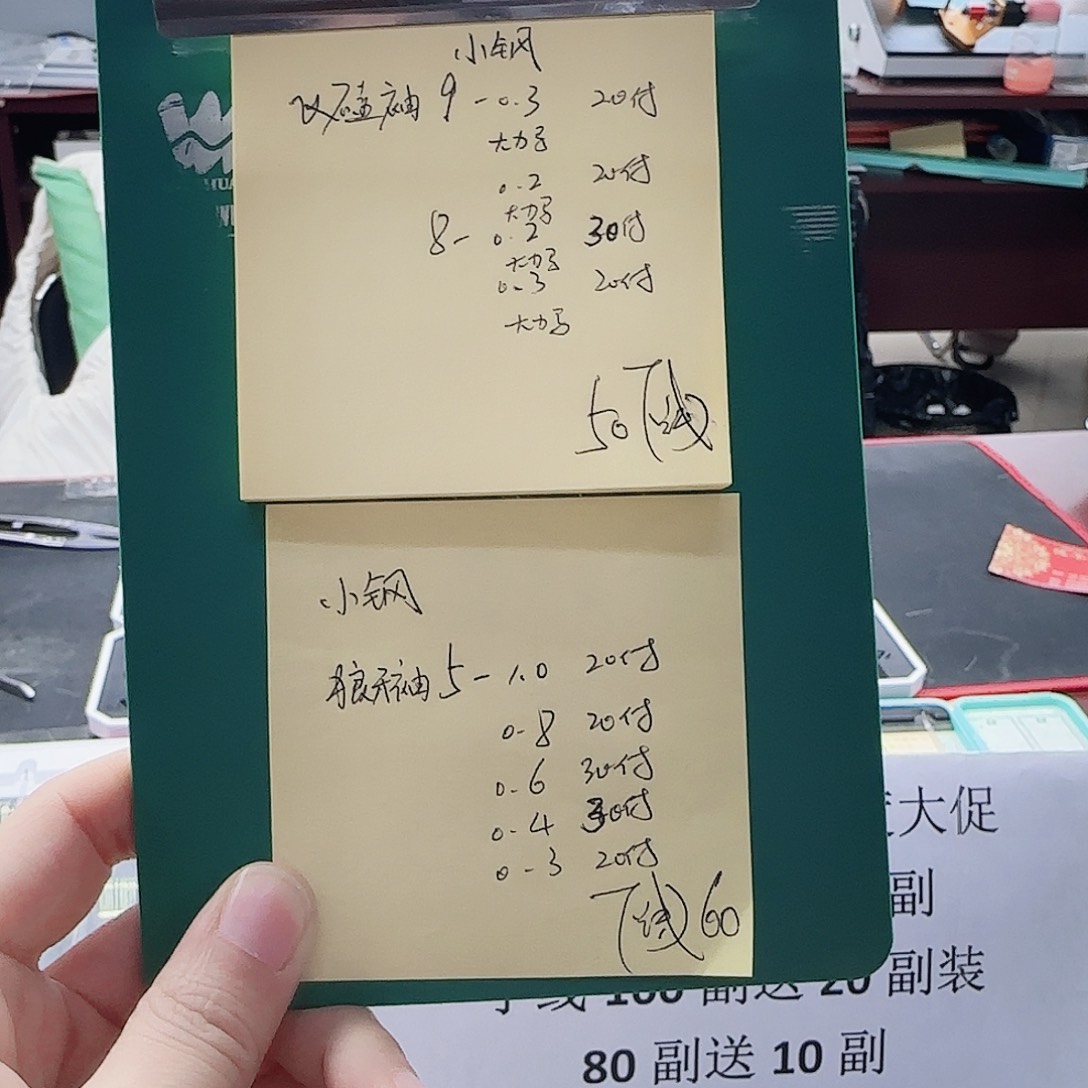 小钢
改磕袖 9 - 0.3 20付
大力马
0.2 20付
大力马
8 - 0.2 30付
大力马
0.3 20付
大力马
50下线
小钢
狼牙袖 5 - 1.0 20付
0.8 20付
0.6 30付
0.4 30付
0.3 20付
下线60
大促
副
子线 100 副送 20 副装
80 副送 10 副